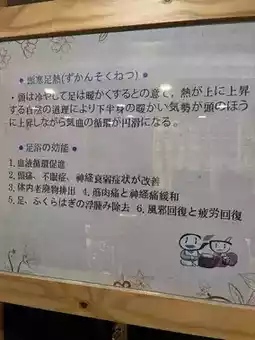 ● 頭寒足熱(ずかんそくねつ) ●
・頭は冷やして足は暖かくするとの意で、熱が上に上昇
する自然の道理により下半身の暖かい気勢が頭のほう
に上昇しながら気血の循環が円滑になる。
● 足浴の効能 ●
1. 血液循環促進
2. 頭痛、不眠症、神経衰弱症状が改善
3. 体内老廃物排出 4. 筋肉痛と神経痛緩和
5. 足、ふくらはぎの浮腫み除去 6. 風邪回復と疲労回復